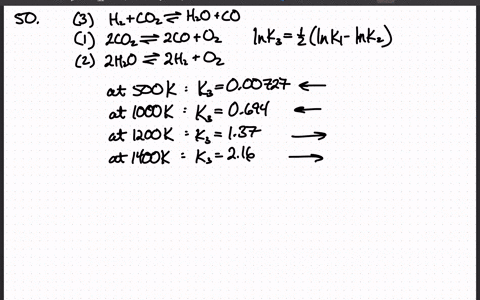 50. (3) H₂ + CO₂ ⇌ H₂O + CO
(1) 2CO₂ ⇌ 2CO + O₂ lnK₃ = ½ (lnK₁ - lnK₂)
(2) 2H₂O ⇌ 2H₂ + O₂
at 500K : K₃ = 0.00727 ←
at 1000K : K₃ = 0.694 ←
at 1200K : K₃ = 1.37 →
at 1400K : K₃ = 2.16 →